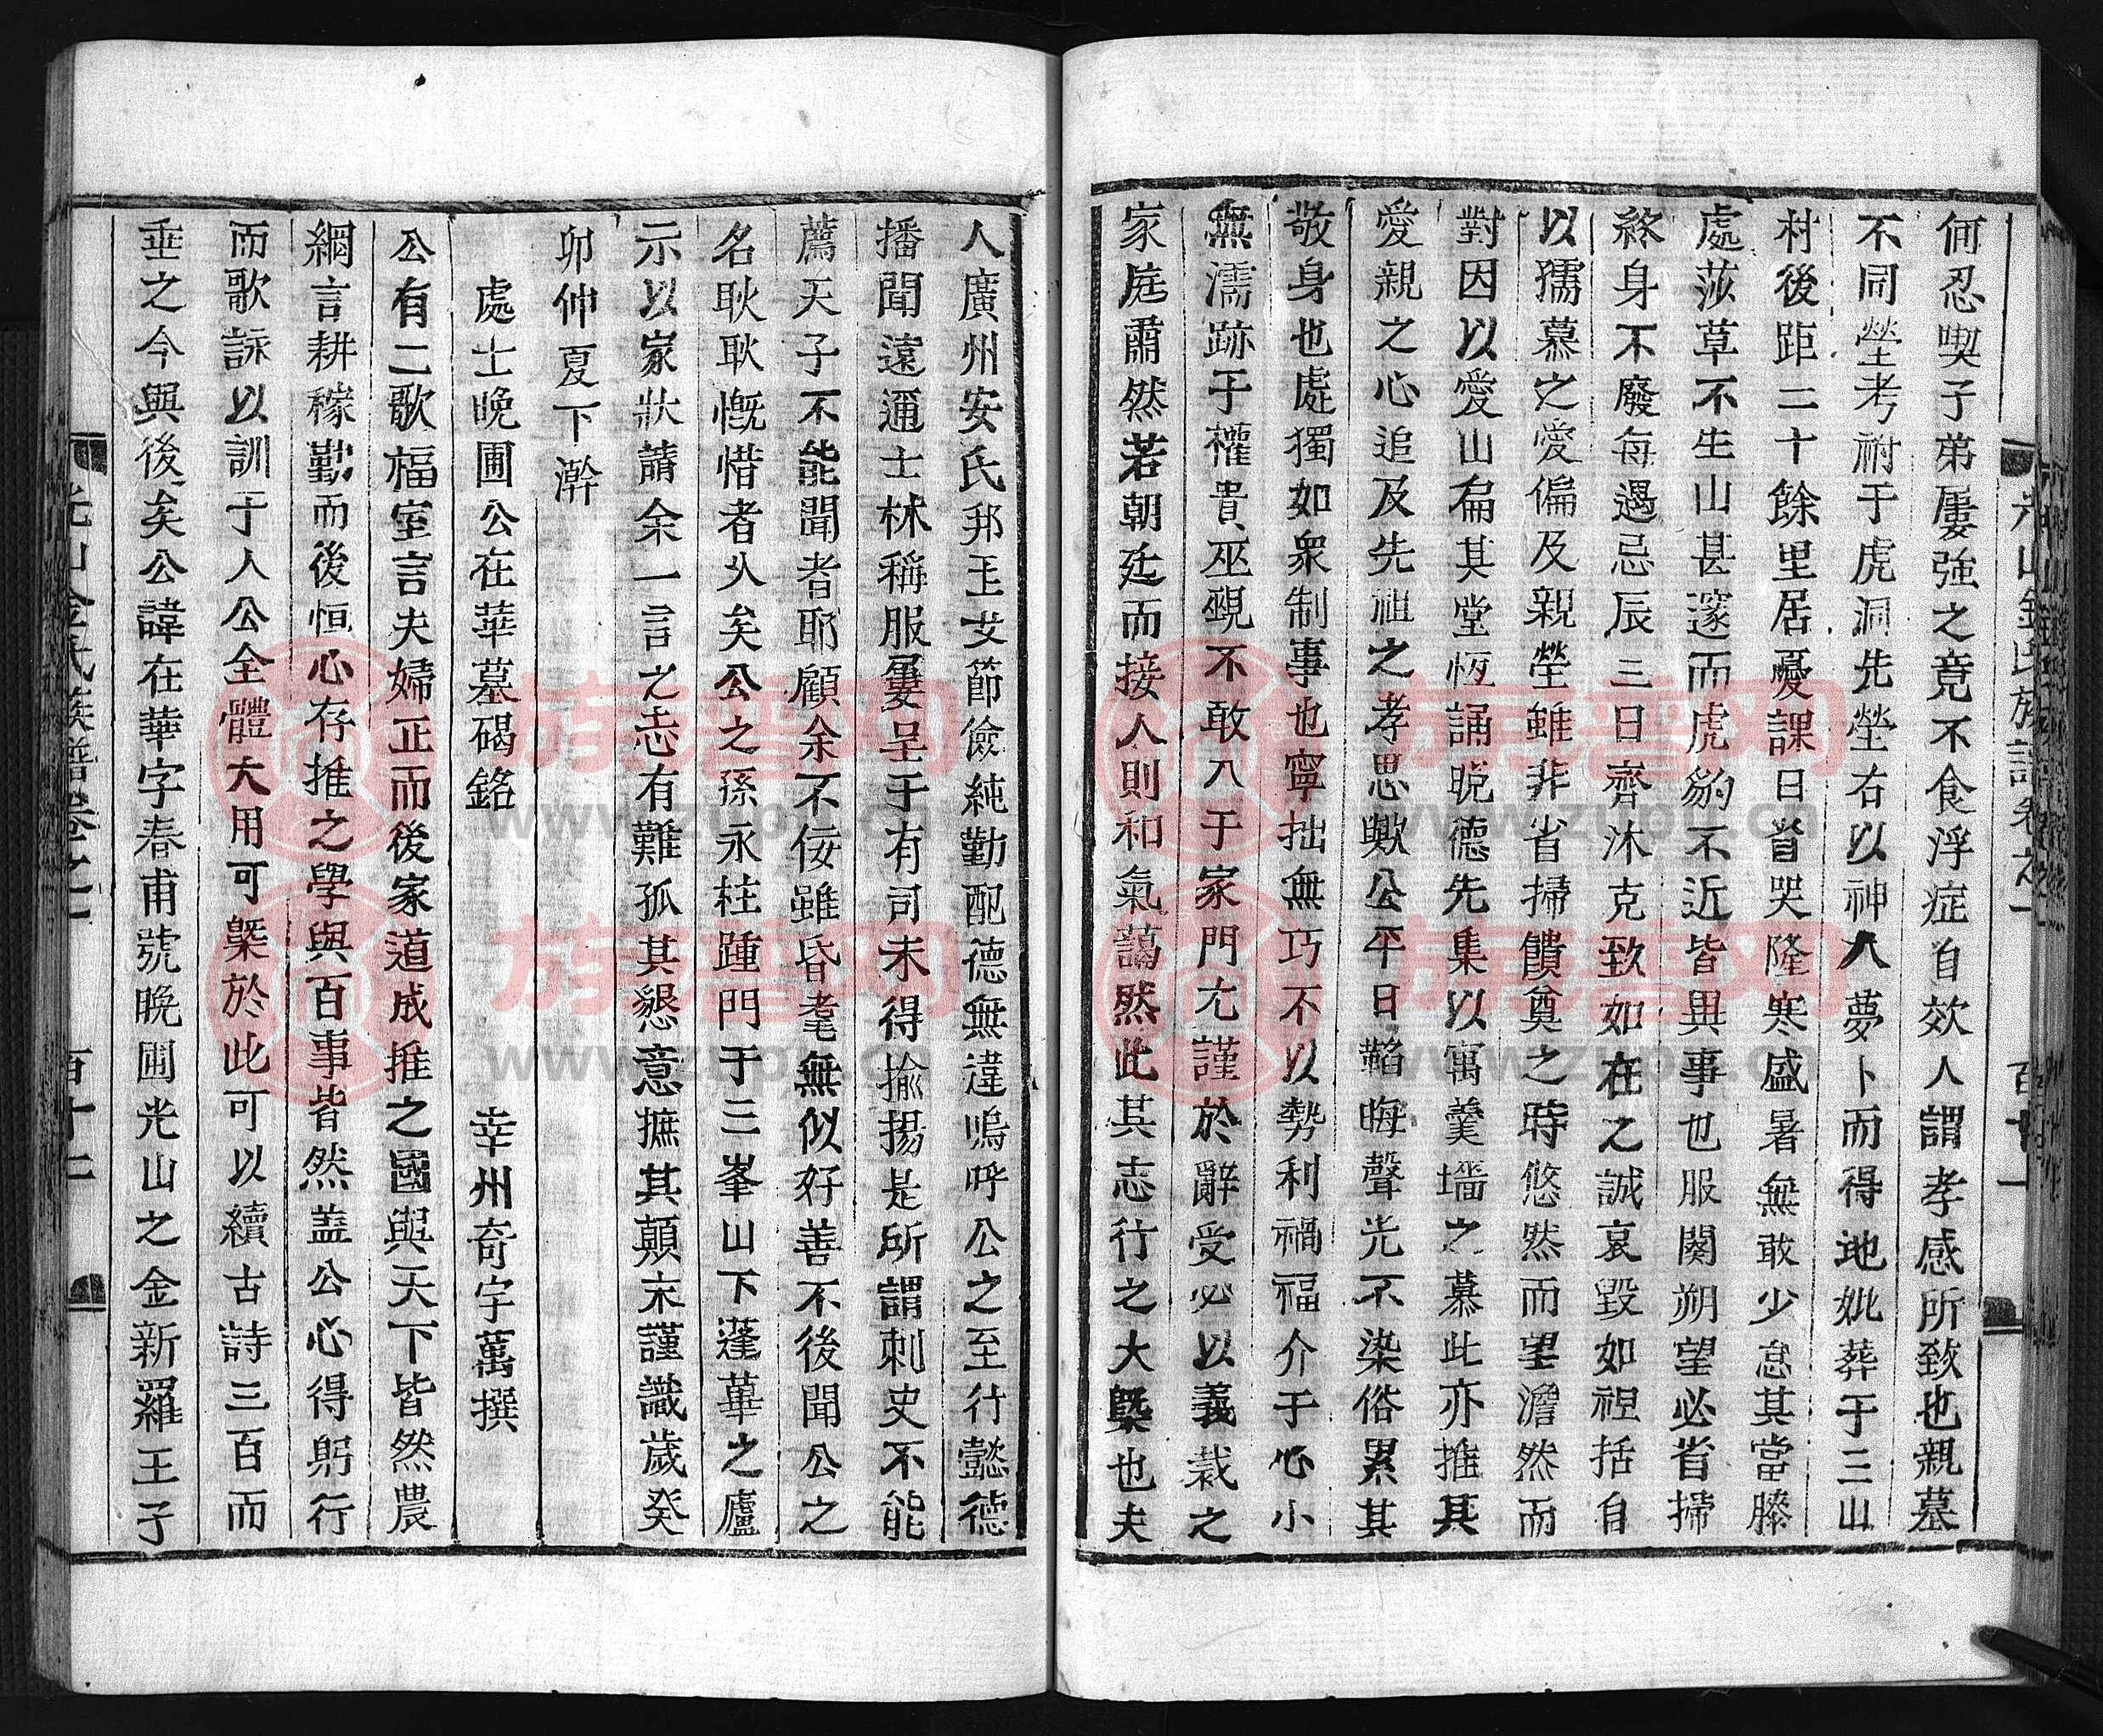 光山金氏族譜卷之一 百十一
何忍喫子弟屢強之竟不食浮症自效人謂孝感所致也親墓
不同塋考祔于虎洞先塋右以神人夢卜而得地妣葬于三山
村後距二十餘里居憂課日省哭隆寒盛暑無敢少怠其當膝
處莎草不生山甚邃而虎豹不近皆異事也服闋朔望必省掃
終身不廢每遇忌辰三日齊沐克致如在之誠哀毀如袒括自
以孺慕之愛偏及親塋雖非省掃饋奠之時悠然而望澹然而
對因以愛山扁其堂恆誦晩德先集以寓羹墻之慕此亦推其
愛親之心追及先祖之孝思歟公平日韜晦聲光不染俗累其
敬身也處獨如衆制事也寧拙無巧不以勢利禍福介于心小
無濡跡于權貴巫覡不敢入于家門尤謹於辭受必以義裁之
家庭肅然若朝廷而接人則和氣藹然此其志行之大槩也夫
人廣州安氏邦王女節儉純勤配德無違嗚呼公之至行懿德
播聞遠邇士林稱服屢呈于有司未得揄揚是所謂刺史不能
薦天子不能聞者耶顧余不佞雖昏耄無似好善不後聞公之
名耿耿慨惜者久矣公之孫永柱踵門于三峯山下蓬蓽之廬
示以家狀請余一言之志有難孤其懇意摭其顛末謹識歲癸
卯仲夏下澣
處士晩圃公在華墓碣銘 幸州奇宇萬撰
公有二歌福室言夫婦正而後家道成推之國與天下皆然農
綱言耕稼勤而後恒心存推之學與百事皆然盖公心得躬行
而歌詠以訓于人公全體大用可槩於此可以續古詩三百而
垂之今與後矣公諱在華字春甫號晩圃光山之金新羅王子
光山金氏族譜卷之一 百十二
族譜网
www.zupu.cn
族譜网
www.zupu.cn
族譜网
www.zupu.cn
族譜网
www.zupu.cn